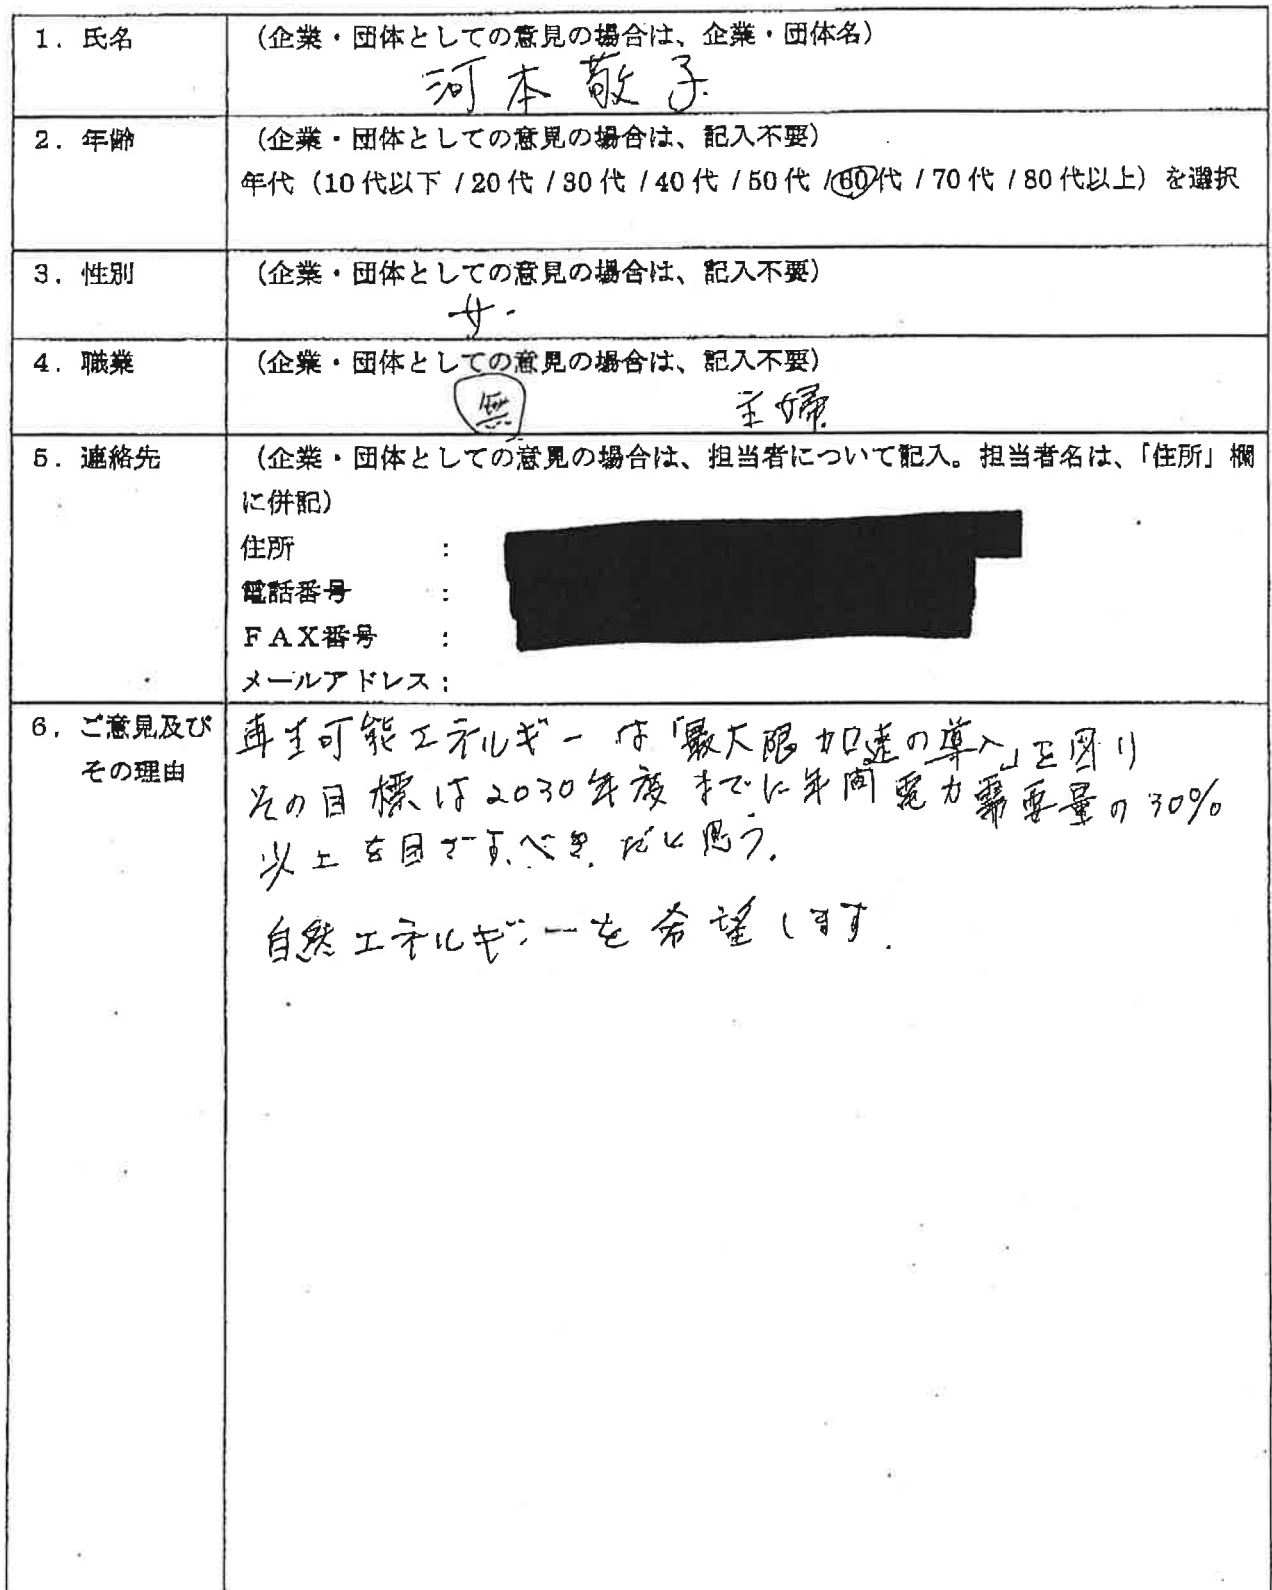 1. 氏名
(企業・団体としての意見の場合は、企業・団体名)
河本敬子
2. 年齢
(企業・団体としての意見の場合は、記入不要)
年代(10代以下 / 20代 / 30代 / 40代 / 50代 / 60代 / 70代 / 80代以上)を選択
3. 性別
(企業・団体としての意見の場合は、記入不要)
女.
4. 職業
(企業・団体としての意見の場合は、記入不要)
無 主婦
5. 連絡先
(企業・団体としての意見の場合は、担当者について記入。担当者名は、「住所」欄
に併記)
住所 :
電話番号 :
FAX番号 :
メールアドレス:
6. ご意見及び
その理由
再生可能エネルギーは「最大限加速の導入」を図り
その目標は2030年度までに年間電力需要量の30%
以上を目ざすべきだと思う.
自然エネルギーを希望します.